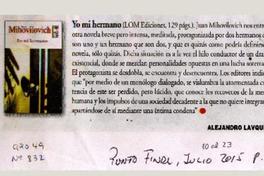 Mihovilovich
Yo mi hermano
Yo mi hermano (LOM Ediciones, 129 págs.). Juan Mihovilovich nos entre
otra novela breve pero intensa, meditada, protagonizada por dos hermanos
son uno y un hermano que son dos, o que quizás son dos cuando están
una sola sombra. Dicha situación da a la vez al lido conductor de un d
existencial, donde se mezclan personalidades opuestas en una lucha soterra
El protagonista se desdobla, se encuentra y desencuentra. Los editores indi
que "por medio de un monólogo dialogado, se vislumbra la intermitencia
de este ser perdido, pero lúcido, que enfrenta los desajustes de la
humana y los impulsos de una sociedad decadente a la que quiere integrar
apartándose de sí mediante una íntima condena"
ALEJANDRO LAVQU
G2049
Nº 832
10 al 23
Punto Final, Julio 2015 P.